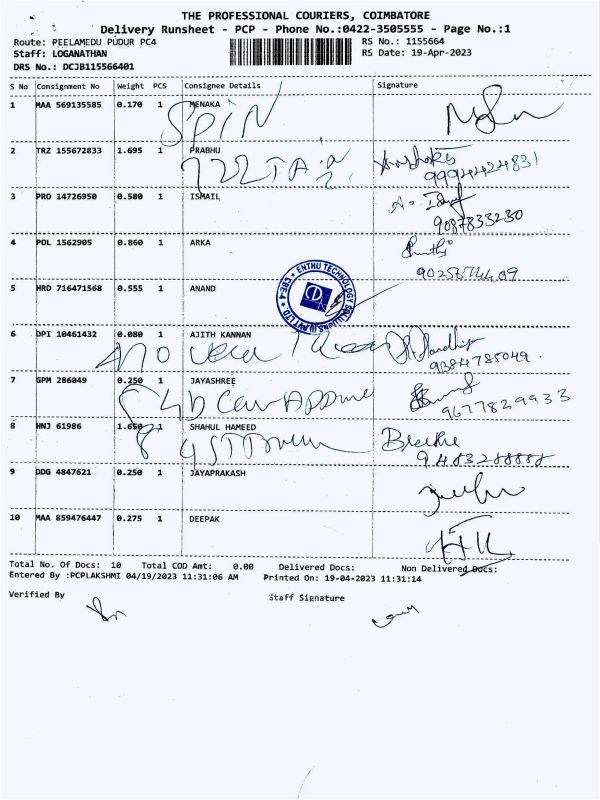 THE PROFESSIONAL COURIERS, COIMBATORE
Delivery Runsheet - PCP - Phone No.:0422-3505555 - Page No.:1
Route: PEELAMEDU PUDUR PC4
RS No.: 1155664
Staff: LOGANATHAN
RS Date: 19-Apr-2023
DRS No.: DCJB115566401
S No Consignment No Weight PCS Consignee Details Signature
1 MAA 569135585 0.170 1 MENAKA
SPIN
2 TRZ 155672833 1.695 1 PRABHU
9994424831
3 PRO 14726950 0.580 1 ISMAIL
9087833230
4 POL 1562905 0.860 1 ARKA
5 HRD 716471568 0.555 1 ANAND
ENTHU TECHNOLOGY SOLUTIONS (I) PVT LTD CBE-4
6 DPI 10461432 0.080 1 AJITH KANNAN
9384785049
7 GPM 286049 0.250 1 JAYASHREE
9677829933
8 HNJ 61986 1.650 1 SHAHUL HAMEED
9 DDG 4847621 0.250 1 JAYAPRAKASH
10 MAA 859476447 0.275 1 DEEPAK
Total No. Of Docs: 10 Total COD Amt: 0.00 Delivered Docs: Non Delivered Docs:
Entered By :PCPLAKSHMI 04/19/2023 11:31:06 AM Printed On: 19-04-2023 11:31:14
Verified By Staff Signature